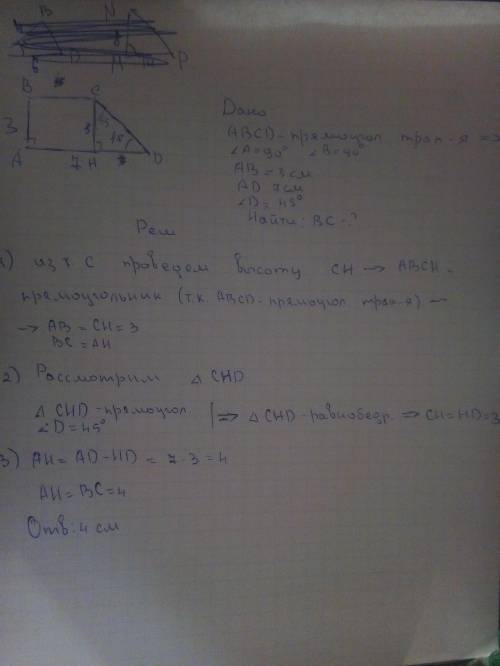 B C
3 3 45
45
A 7 H D
Дано
ABCD - прямоугол трап-я =>
∠A=90° ∠B=90°
AB = 3 см
AD 7 см
∠D = 45°
Найти: BC - ?
Реш
1) из т. C проведем высоту CH → ABCH -
прямоугольник (т.к. ABCD - прямоугол трап-я) -
→ AB = CH = 3
BC = AH
2) Рассмотрим △ CHD
△ CHD - прямоугол.
∠D = 45° | => △ CHD - равнобедр. => CH = HD = 3
3) AH = AD - HD = 7 - 3 = 4
AH = BC = 4
Отв: 4 см